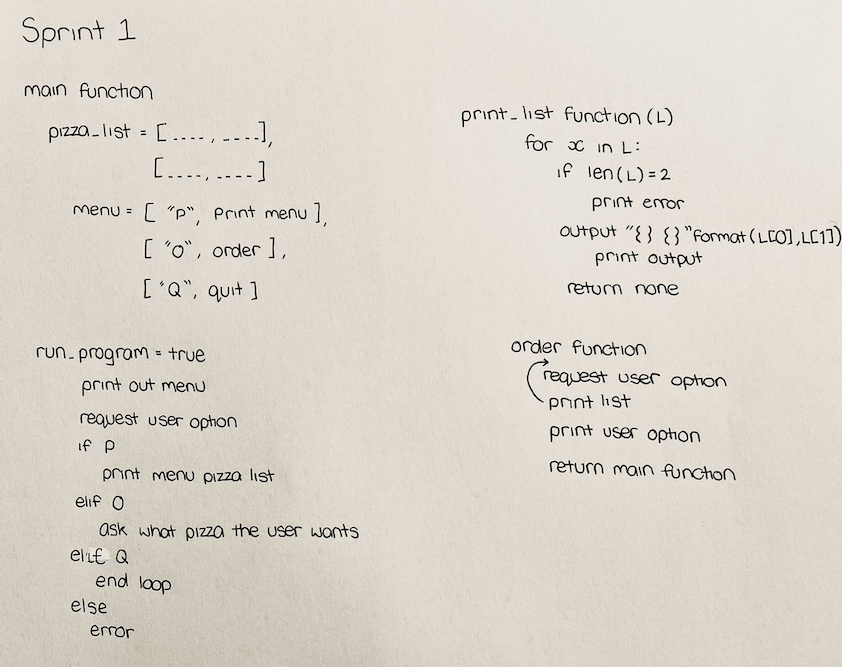 Sprint 1
main function
pizza_list = [ ...., ....],
[...., ....]
menu = [ "P", Print menu ],
[ "O", order ],
[ "Q", quit ]
run_program = true
print out menu
request user option
if P
print menu pizza list
elif O
ask what pizza the user wants
elif Q
end loop
else
error
print_list function (L)
for x in L:
if len(L) = 2
print error
output "{} {}"format(L[0],L[1])
print output
return none
order function
request user option
print list
print user option
return main function